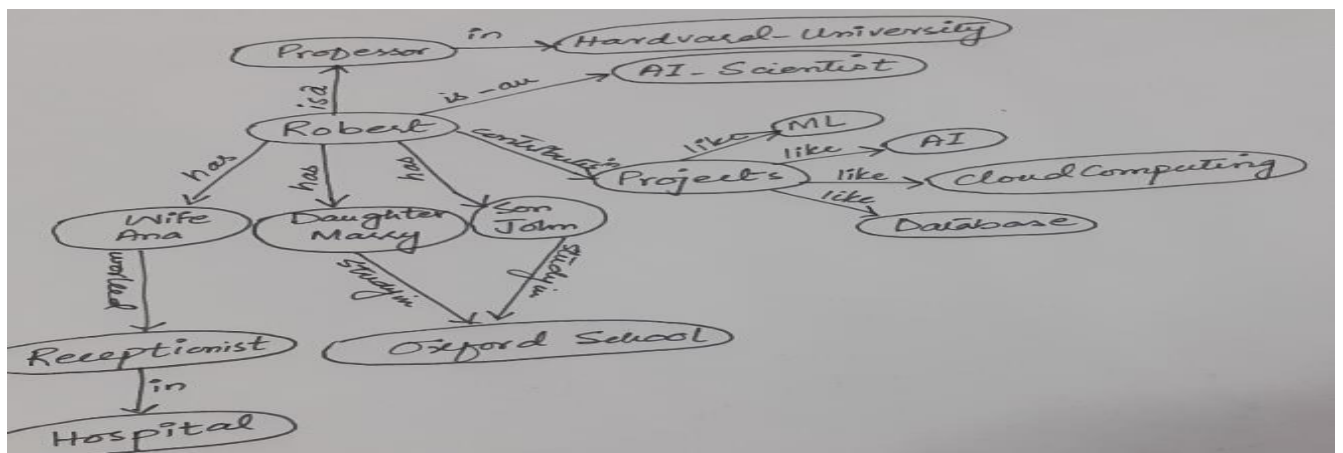 in
Professor
Hardvard-University
AI-Scientist
is-an
isa
Robert
contributes in
like
ML
like
AI
Projects
like
Cloud Computing
like
Database
has
has
has
Wife
Ana
Daughter
Marry
Son
John
worked
study in
study in
Receptionist
Oxford School
in
Hospital